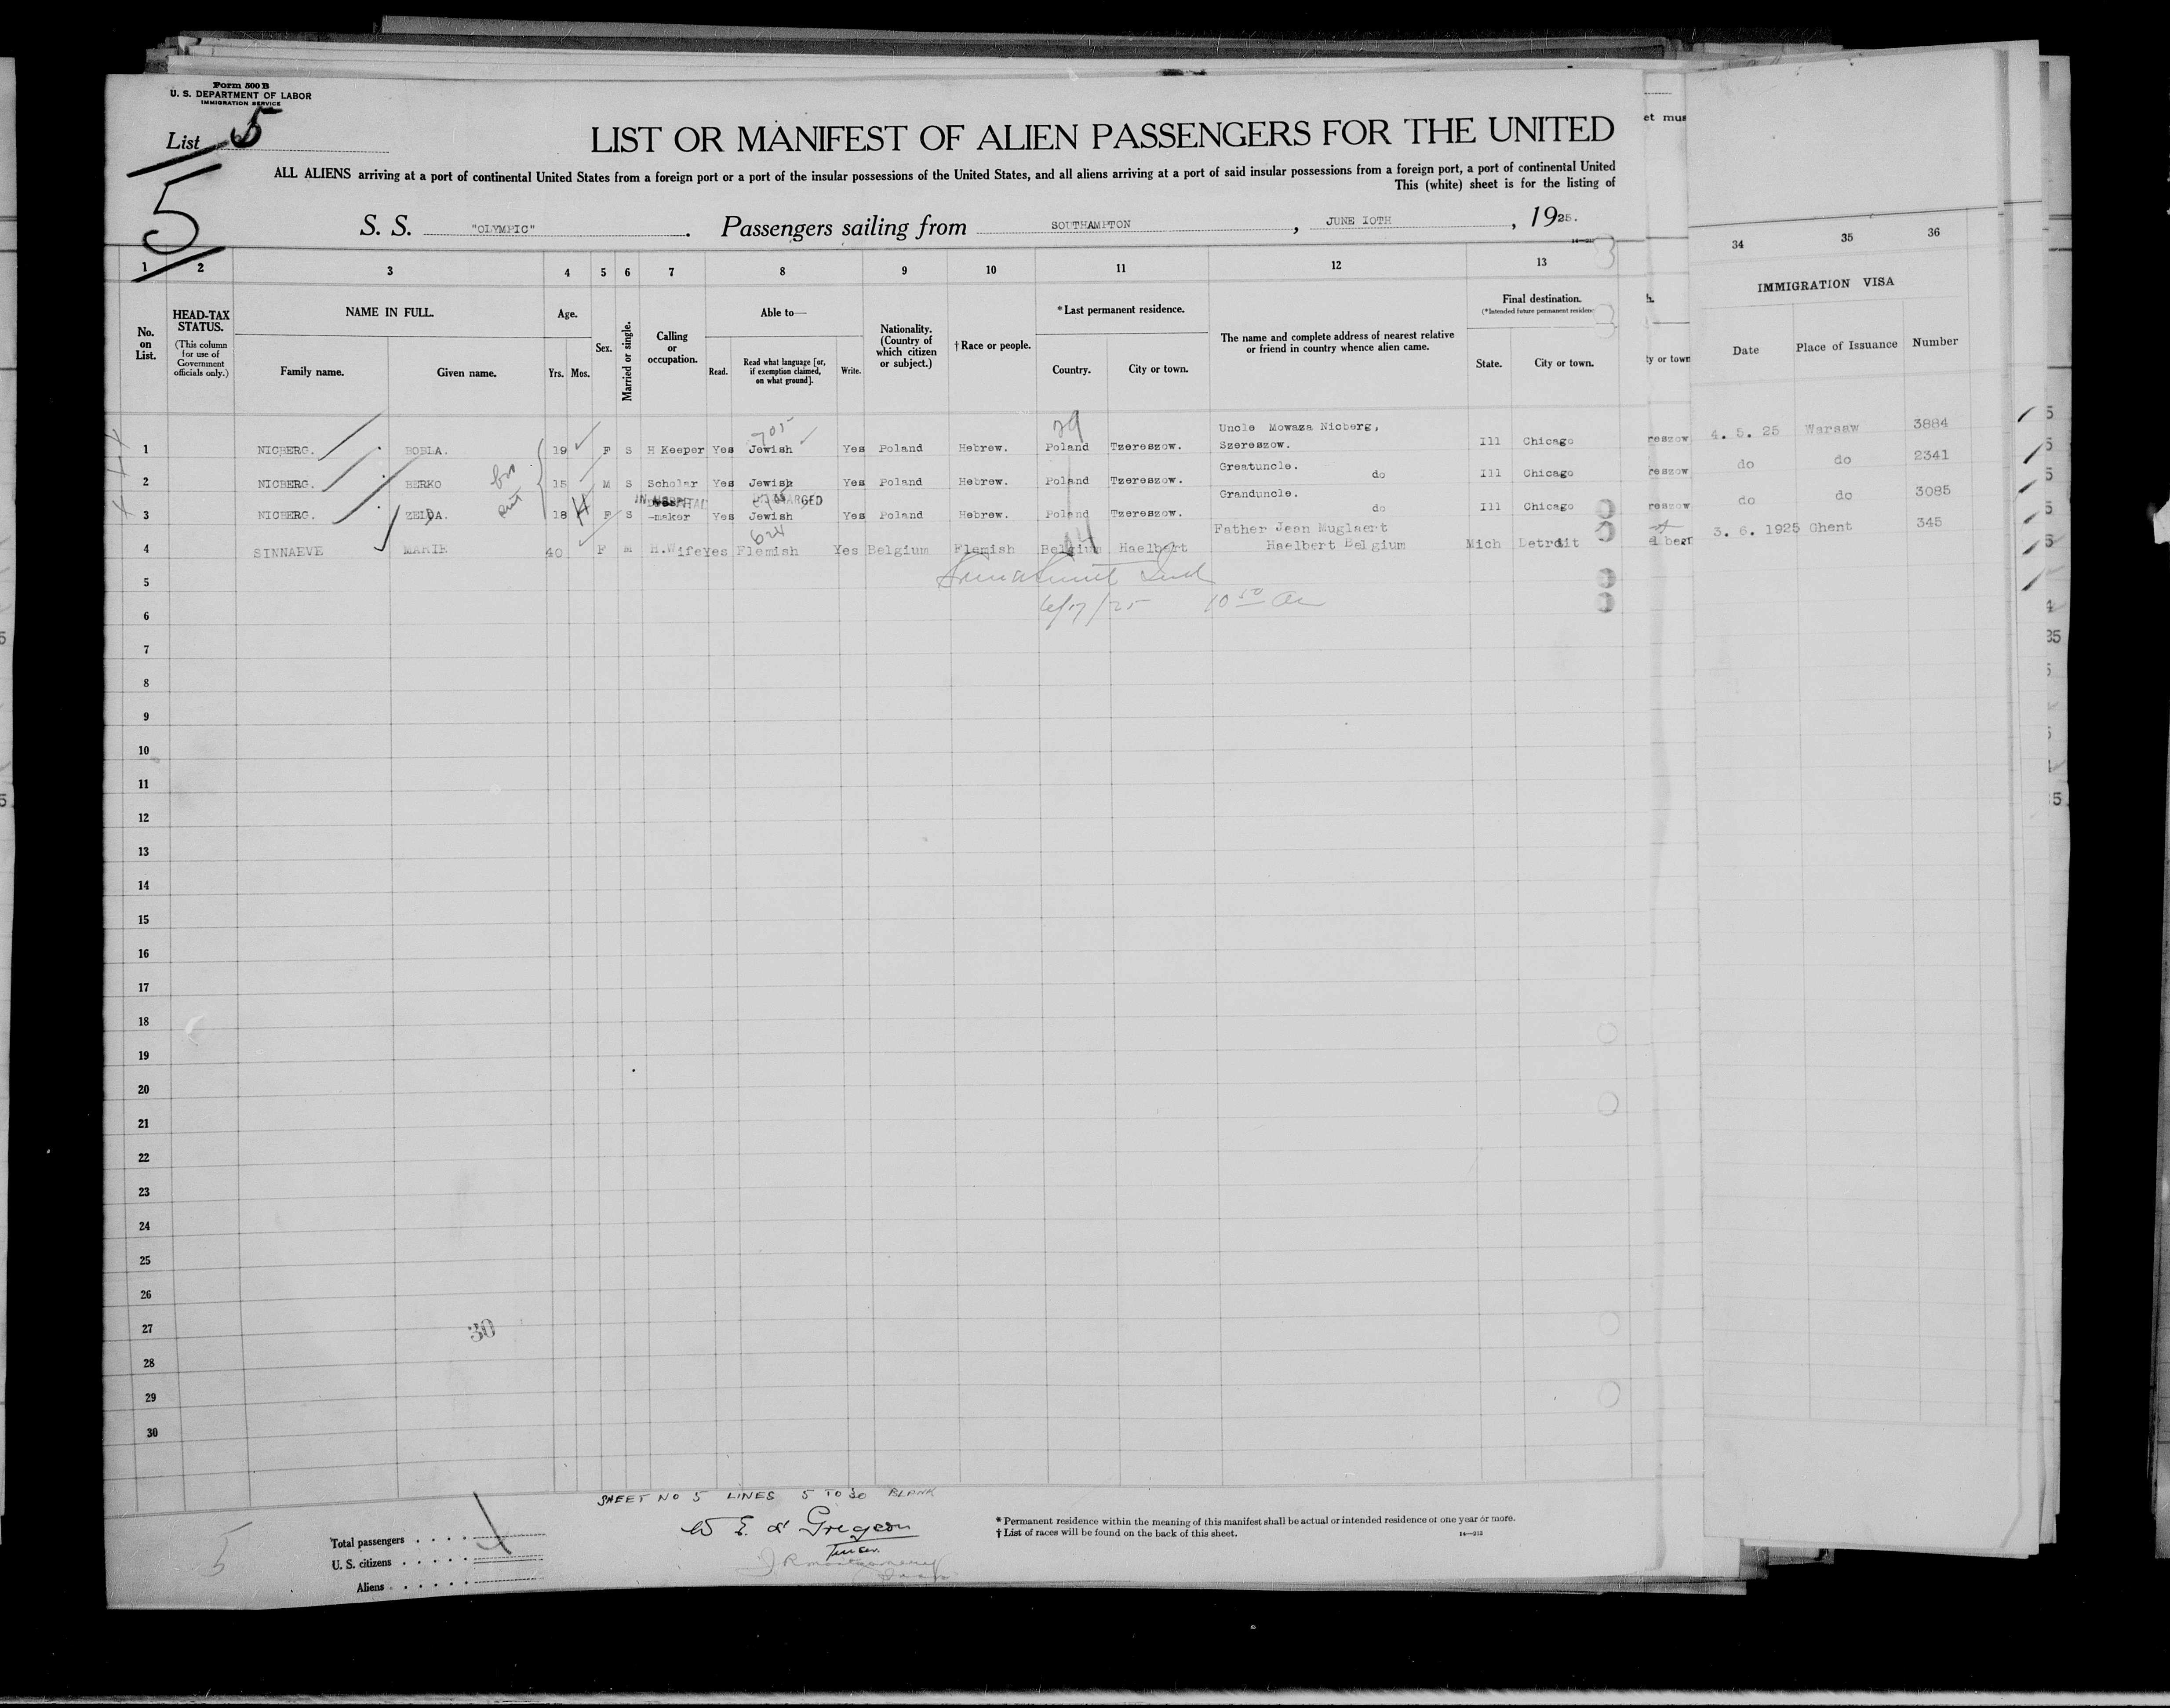 Form 500 B
U. S. DEPARTMENT OF LABOR
IMMIGRATION SERVICE
List 5
5
LIST OR MANIFEST OF ALIEN PASSENGERS FOR THE UNITED
ALL ALIENS arriving at a port of continental United States from a foreign port or a port of the insular possessions of the United States, and all aliens arriving at a port of said insular possessions from a foreign port, a port of continental United
This (white) sheet is for the listing of
S. S. "OLYMPIC". Passengers sailing from SOUTHAMPTON, JUNE IOTH, 1925.
1 2 3 4 5 6 7 8 9 10 11 12 13
No. on List.
HEAD-TAX STATUS.
(This column for use of Government officials only.)
NAME IN FULL.
Family name. Given name.
Age.
Yrs. Mos.
Sex.
Married or single.
Calling or occupation.
Able to—
Read. Read what language [or, if exemption claimed, on what ground]. Write.
Nationality. (Country of which citizen or subject.)
†Race or people.
*Last permanent residence.
Country. City or town.
The name and complete address of nearest relative or friend in country whence alien came.
Final destination.
(*Intended future permanent residence
State. City or town.
et mus
h.
ty or town
34 35 36
IMMIGRATION VISA
Date Place of Issuance Number
705 29
Uncle Mowaza Nicberg,
1 NICBERG. BOBLA. 19 F S H Keeper Yes Jewish Yes Poland Hebrew. Poland Tzereszow. Szereszow. Ill Chicago reszow 4. 5. 25 Warsaw 3884
Greatuncle.
2 NICBERG. BERKO 15 M S Scholar Yes Jewish Yes Poland Hebrew. Poland Tzereszow. do Ill Chicago reszow do do 2341
IN HOSPITAL
Granduncle.
3 NICBERG. ZELDA. 18 F S -maker Yes Jewish Yes Poland Hebrew. Poland Tzereszow. do Ill Chicago reszow do do 3085
624
Father Jean Muglaert
4 SINNAEVE MARIE 40 F M H.Wife Yes Flemish Yes Belgium Flemish Belgium Haelbert Haelbert Belgium Mich Detroit 3. 6. 1925 Ghent 345
5
6 6/17/25 10 50 am
7
8
9
10
11
12
13
14
15
16
17
18
19
20
21
22
23
24
25
26
27
30
28
29
30
SHEET NO 5 LINES 5 TO 30 BLANK
5
Total passengers
U. S. citizens
Aliens
* Permanent residence within the meaning of this manifest shall be actual or intended residence of one year or more.
† List of races will be found on the back of this sheet.